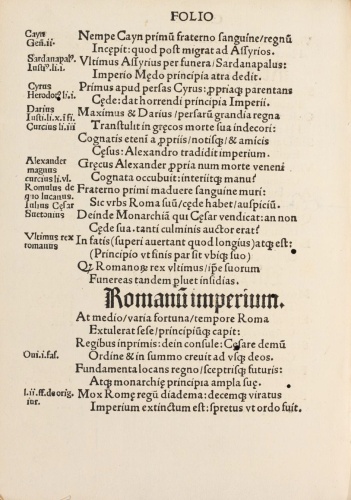 FOLIO
Cayn
Geñ.ii.
Nempe Cayn primũ fraterno sanguine/regnũ
Incępit: quod post migrat ad Assyrios.
Sardanapal⁹.
Iusti⁹.li.i.
Vltimus Assyrius per funera/Sardanapalus:
Imperio Mędo principia atra dedit.
Cyrus
Herodoꝗ li.i.
Primus apud persas Cyrus: ꝓpriaqꝫ parentans
Cęde: dat horrendi principia Imperii.
Darius
Iusti.li.x.ffi.
Curcius li.iii
Maximus & Darius/persarũ grandia regna
Transtulit in gręcos morte sua indecori:
Cognatis eteni aꝓpriis/notisqꝫ/& amicis
Cęsus: Alexandro tradidit imperium.
Alexander
magnus
curcius li.vi.
Gręcus Alexander ꝓpria num morte veneni
Cognata occubuit: interiitqꝫ manu?
Romulus de
quo lucanus.
Fraterno primi maduere sanguine muri:
Iulius Cęsar
Suetonius
Sic vrbs Roma suũ/cęde habet/auspiciũ.
Deinde Monarchiã qui Cęsar vendicat: an non
Cęde sua. tanti culminis auctor erat?
Vltimus rex
romanus
In fatis (superi auertant quod longius) atqꝫ est:
(Principio vt finis par sit vbiqꝫ suo)
Qꝫ Romanoꝝ rex vltimus/ipẽ suorum
Funereas tandem pluet insidias.
Romanũ imperium.
At medio/varia fortuna/tempore Roma
Extulerat sese/principiũqꝫ capit:
Regibus inprimis: dein consule: Cęsare demũ
Oui.i.fas.
Ordine & in summo creuit ad vsqꝫ deos.
Fundamenta locans regno/sceptrisqꝫ futuris:
Atqꝫ monarchię principia ampla suę.
l.ii.ff.de orig.
iur.
Mox Romę regũ diadema: decemqꝫ viratus
Imperium extinctum est: spretus vt ordo fuit.